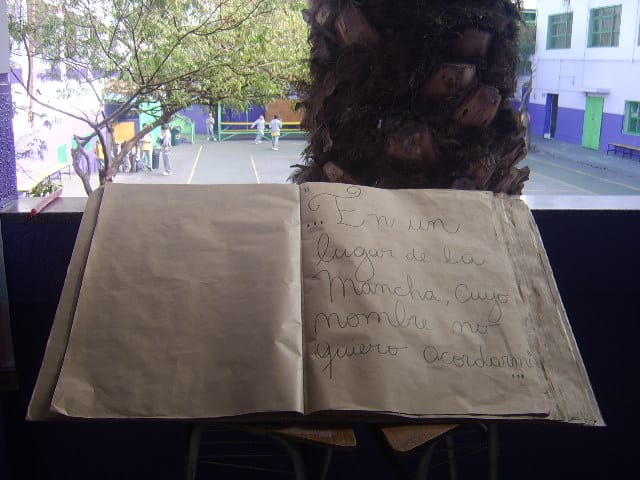 "...En un
lugar de la
Mancha, cuyo
nombre no
quiero acordarme
...